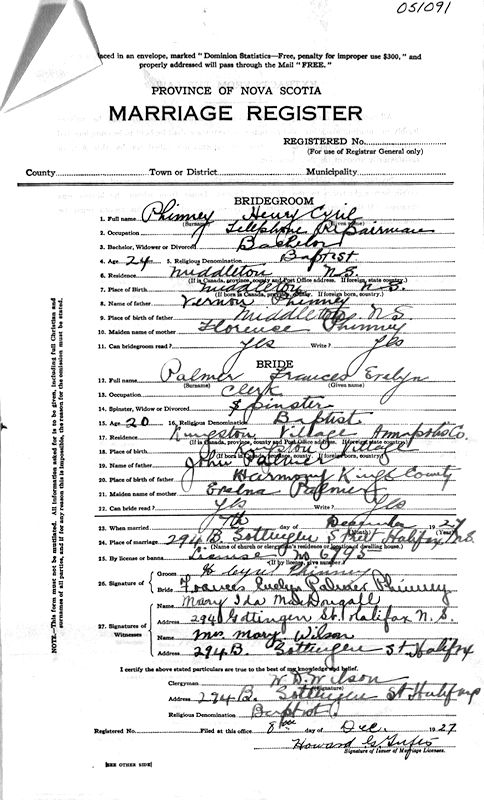 051091
ced in an envelope, marked "Dominion Statistics—Free, penalty for improper use $300," and
properly addressed will pass through the Mail "FREE."
PROVINCE OF NOVA SCOTIA
MARRIAGE REGISTER
REGISTERED No.
(For use of Registrar General only)
County Town or District Municipality
BRIDEGROOM
1. Full name Phinney Henry Cyril
(Surname) (Given name)
2. Occupation Telephone Repairman
3. Bachelor, Widower or Divorced Bachelor
4. Age 24 5. Religious Denomination Baptist
6. Residence Middleton N.S.
(If in Canada, province, county and Post Office address. If foreign, state country.)
7. Place of Birth Middleton N.S.
(If born in Canada, province, county. If foreign born, country.)
8. Name of father Vernon Phinney
9. Place of birth of father Middleton N.S.
10. Maiden name of mother Florence Phinney
11. Can bridegroom read? Yes Write? Yes
BRIDE
12. Full name Palmer Frances Evelyn
(Surname) (Given name)
13. Occupation Clerk
14. Spinster, Widow or Divorced Spinster
15. Age 20 16. Religious Denomination Baptist
17. Residence Kingston Village Annapolis Co.
(If in Canada, province, county and Post Office address. If foreign state country.)
18. Place of birth Kingston Village
(If born in Canada, province, county. If foreign born, country.)
19. Name of father John Palmer
20. Place of birth of father Harmony Kings County
21. Maiden name of mother Palmer
22. Can bride read? Yes Write? Yes
23. When married 7th day of December 1927
(Month) (Year)
24. Place of marriage 294 B. Gottingen Street Halifax N.S.
(Name of church or clergyman's residence or location of dwelling house.)
25. By license or banns License No 6193
(If by license, give number.)
26. Signature of
Groom H Cyril Phinney
Bride Frances Evelyn Palmer Phinney
27. Signatures of Witnesses
Name Mary Ida MacDougall
Address 294 Gottingen St. Halifax N.S.
Name Mrs. Mary Wilson
Address 294 B. Gottingen St Halifax
I certify the above stated particulars are true to the best of my knowledge and belief.
Clergyman W. D. Wilson
(Signature)
Address 294 B. Gottingen St Halifax
Religious Denomination Baptist
Registered No. Filed at this office 8 day of Dec. 1927
Howard G.
Signature of Issuer of Marriage Licenses.
[SEE OTHER SIDE]
NOTE.—This form must not be mutilated. All information asked for is to be given, including full Christian and
surnames of all parties, and if for any reason this is impossible, the reason for the omission must be stated.